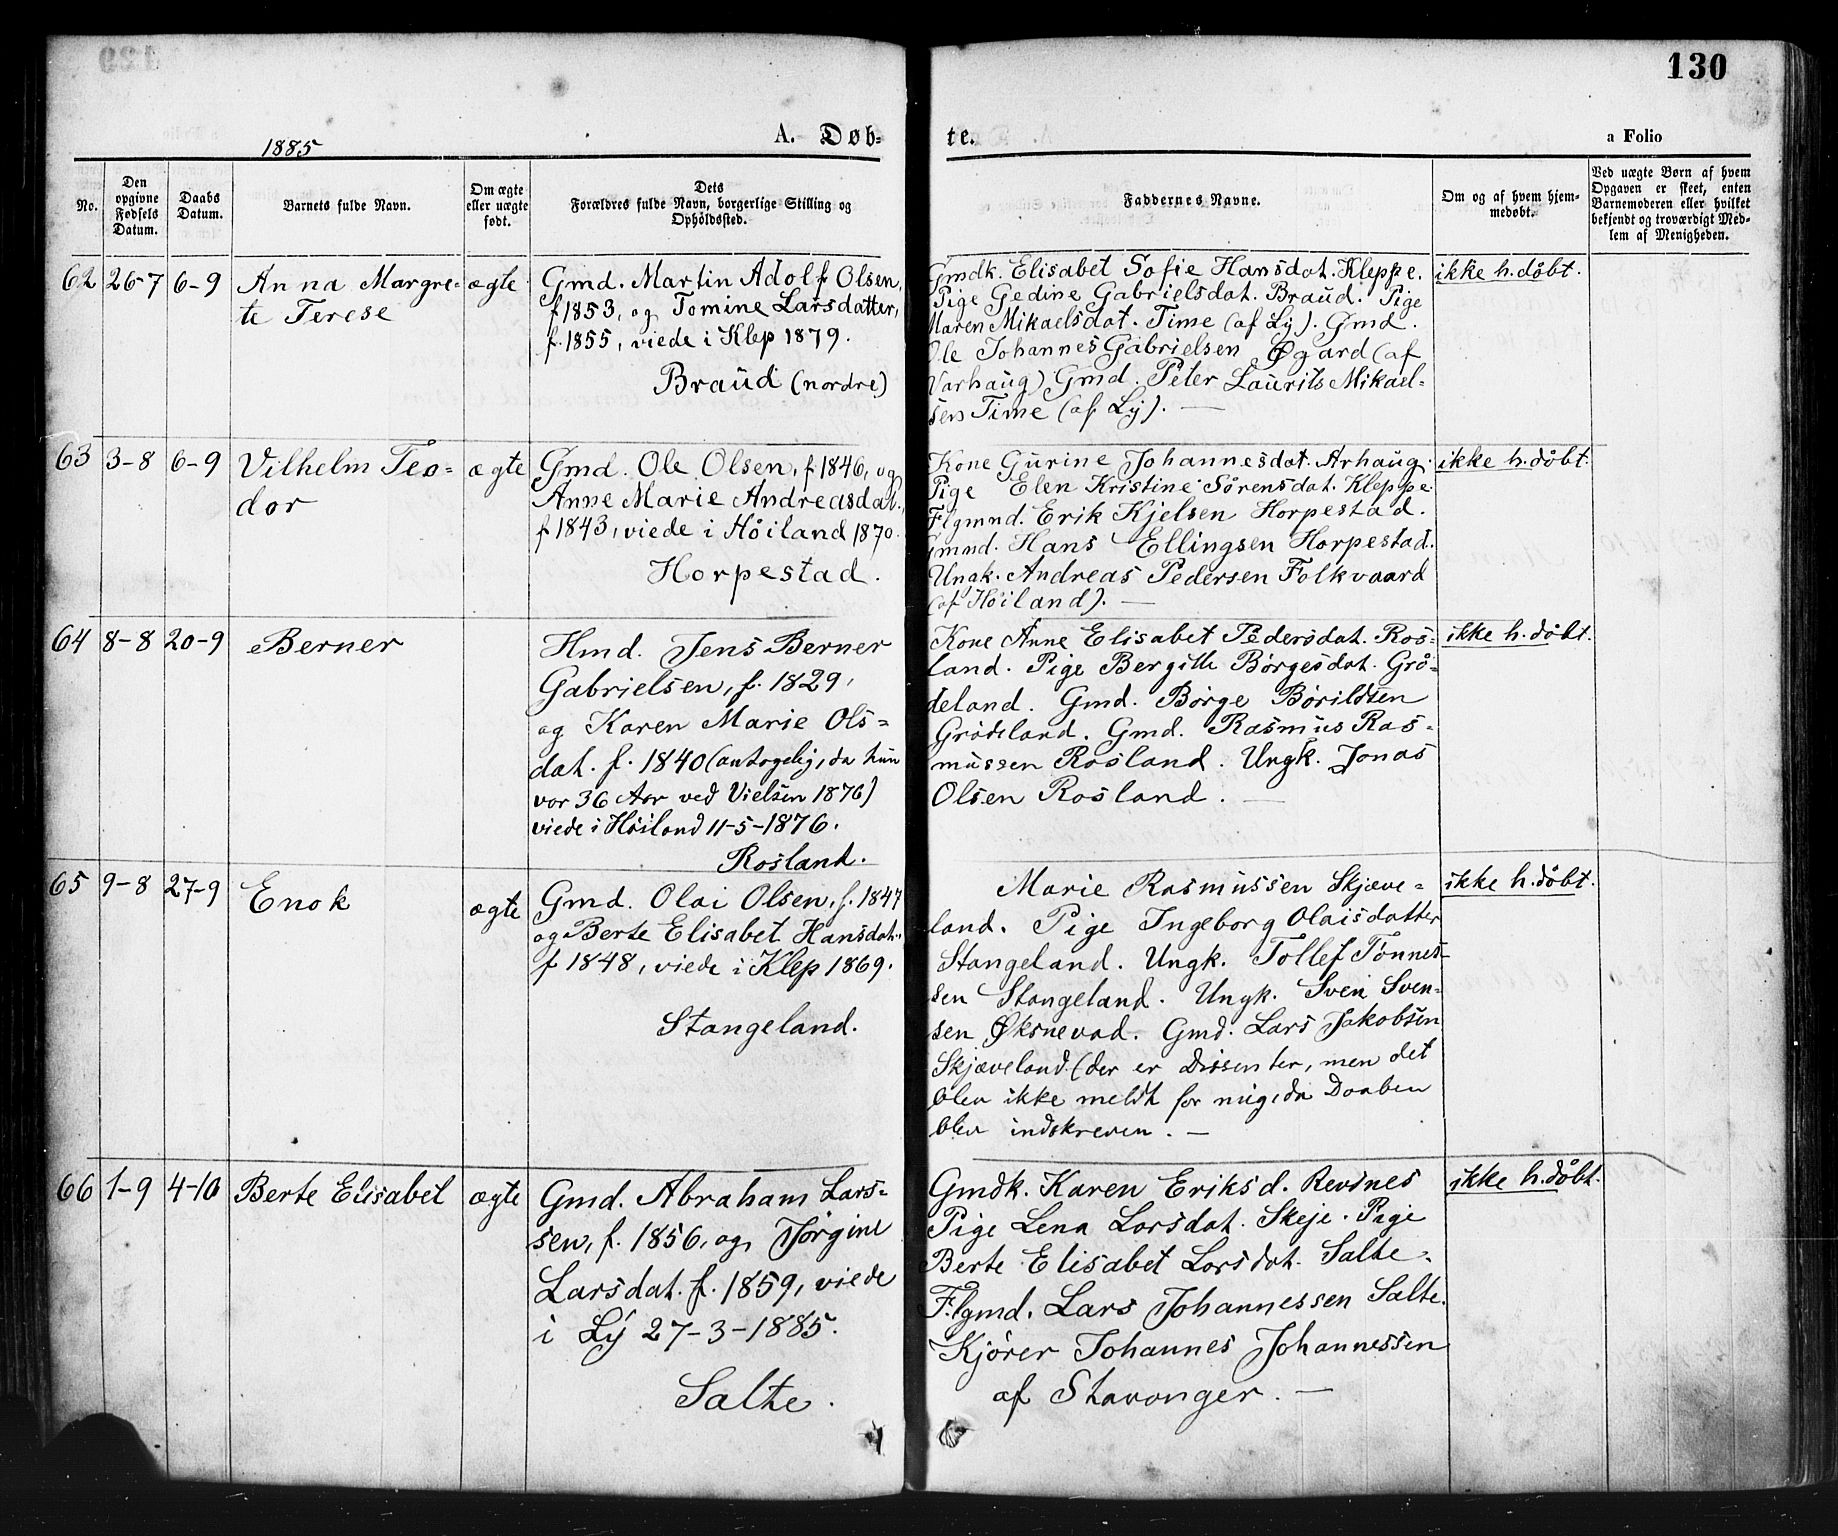 130
1885
A. Døb-
te.
a Folio
No.
Den
opgivne
Fødsels
Datum.
Daabs
Datum.
Barnets fulde Navn.
Om ægte
eller uægte
født.
Dets
Forældres fulde Navn, borgerlige Stilling og
Opholdssted.
Faddernes Navne.
Om og af hvem hjem-
medøbt.
Ved uægte Børn af hvem
Opgaven er skeet, enten
Barnemoderen eller hvilket
bekjendt og troværdigt Med-
lem af Menigheden.
62 26-7 6-9
Anna Margre-
te Terese
ægte
Gmd. Martin Adolf Olsen,
f 1853, og Tomine Larsdatter,
f. 1855, viede i Klep 1879.
Braud (nordre)
Gmdk. Elisabet Sofie Hansdat. Kleppe.
Pige Gedine Gabrielsdat. Braud. Pige
Maren Mikaelsdat. Time (af Ly). Gmd.
Ole Johannes Gabrielsen Øgard (af
Varhaug) Gmd. Peter Laurits Mikael-
sen Time (af Ly). —
ikke h. døbt.
63 3-8 6-9
Vilhelm Teo-
dor
ægte
Gmd. Ole Olsen, f 1846, og
Anne Marie Andreasdat.,
f 1843, viede i Høiland 1870.
Horpestad.
Kone Gurine Johannesdat. Arhaug.
Pige Elen Kristine Sørensdat. Kleppe.
Flgmnd. Erik Kjelsen Horpestad.
Gmnd. Hans Ellingsen Horpestad.
Ungk. Andreas Pedersen Folkvaard
(af Høiland). —
ikke h. døbt.
64 8-8 20-9
Berner
Hmd. Jens Berner
Gabrielsen, f. 1829,
og Karen Marie Ols-
dat. f. 1840 (antagelig, da hun
var 36 Aar ved Vielsen 1876)
viede i Høiland 11-5-1876.
Rosland.
Kone Anne Elisabet Pedersdat. Ros-
land. Pige Bergitte Børgesdat. Grø-
deland. Gmd. Børge Børildsen
Grødeland. Gmd. Rasmus Ras-
mussen Rosland. Ungk. Jonas
Olsen Rosland. —
ikke h. døbt.
65 9-8 27-9
Enok
ægte
Gmd. Olai Olsen, f. 1847
og Berte Elisabet Hansdat.
f 1848, viede i Klep 1869.
Stangeland.
Marie Rasmussen Skjæve-
land. Pige Ingeborg Olaisdatter
Stangeland. Ungk. Tollef Tønnes-
sen Stangeland. Ungk. Sven Sven-
sen Øksnevad. Gmd. Lars Jakobsen
Skjæveland (der er Dissenter, men det
blev ikke meldt for mig, da Daaben
blev indskreven. —
ikke h. døbt.
66 1-9 4-10
Berte Elisabet
ægte
Gmd. Abraham Lars-
sen, f. 1856, og Jørgine
Larsdat. f. 1859, viede
i Ly 27-3-1885.
Salte.
Gmdk. Karen Eriksd. Revines
Pige Lena Larsdat. Skeje. Pige
Berte Elisabet Larsdat. Salte.
Flgmd. Lars Johannessen Salte.
Kjører Johannes Johannessen
af Stavanger. —
ikke h. døbt.